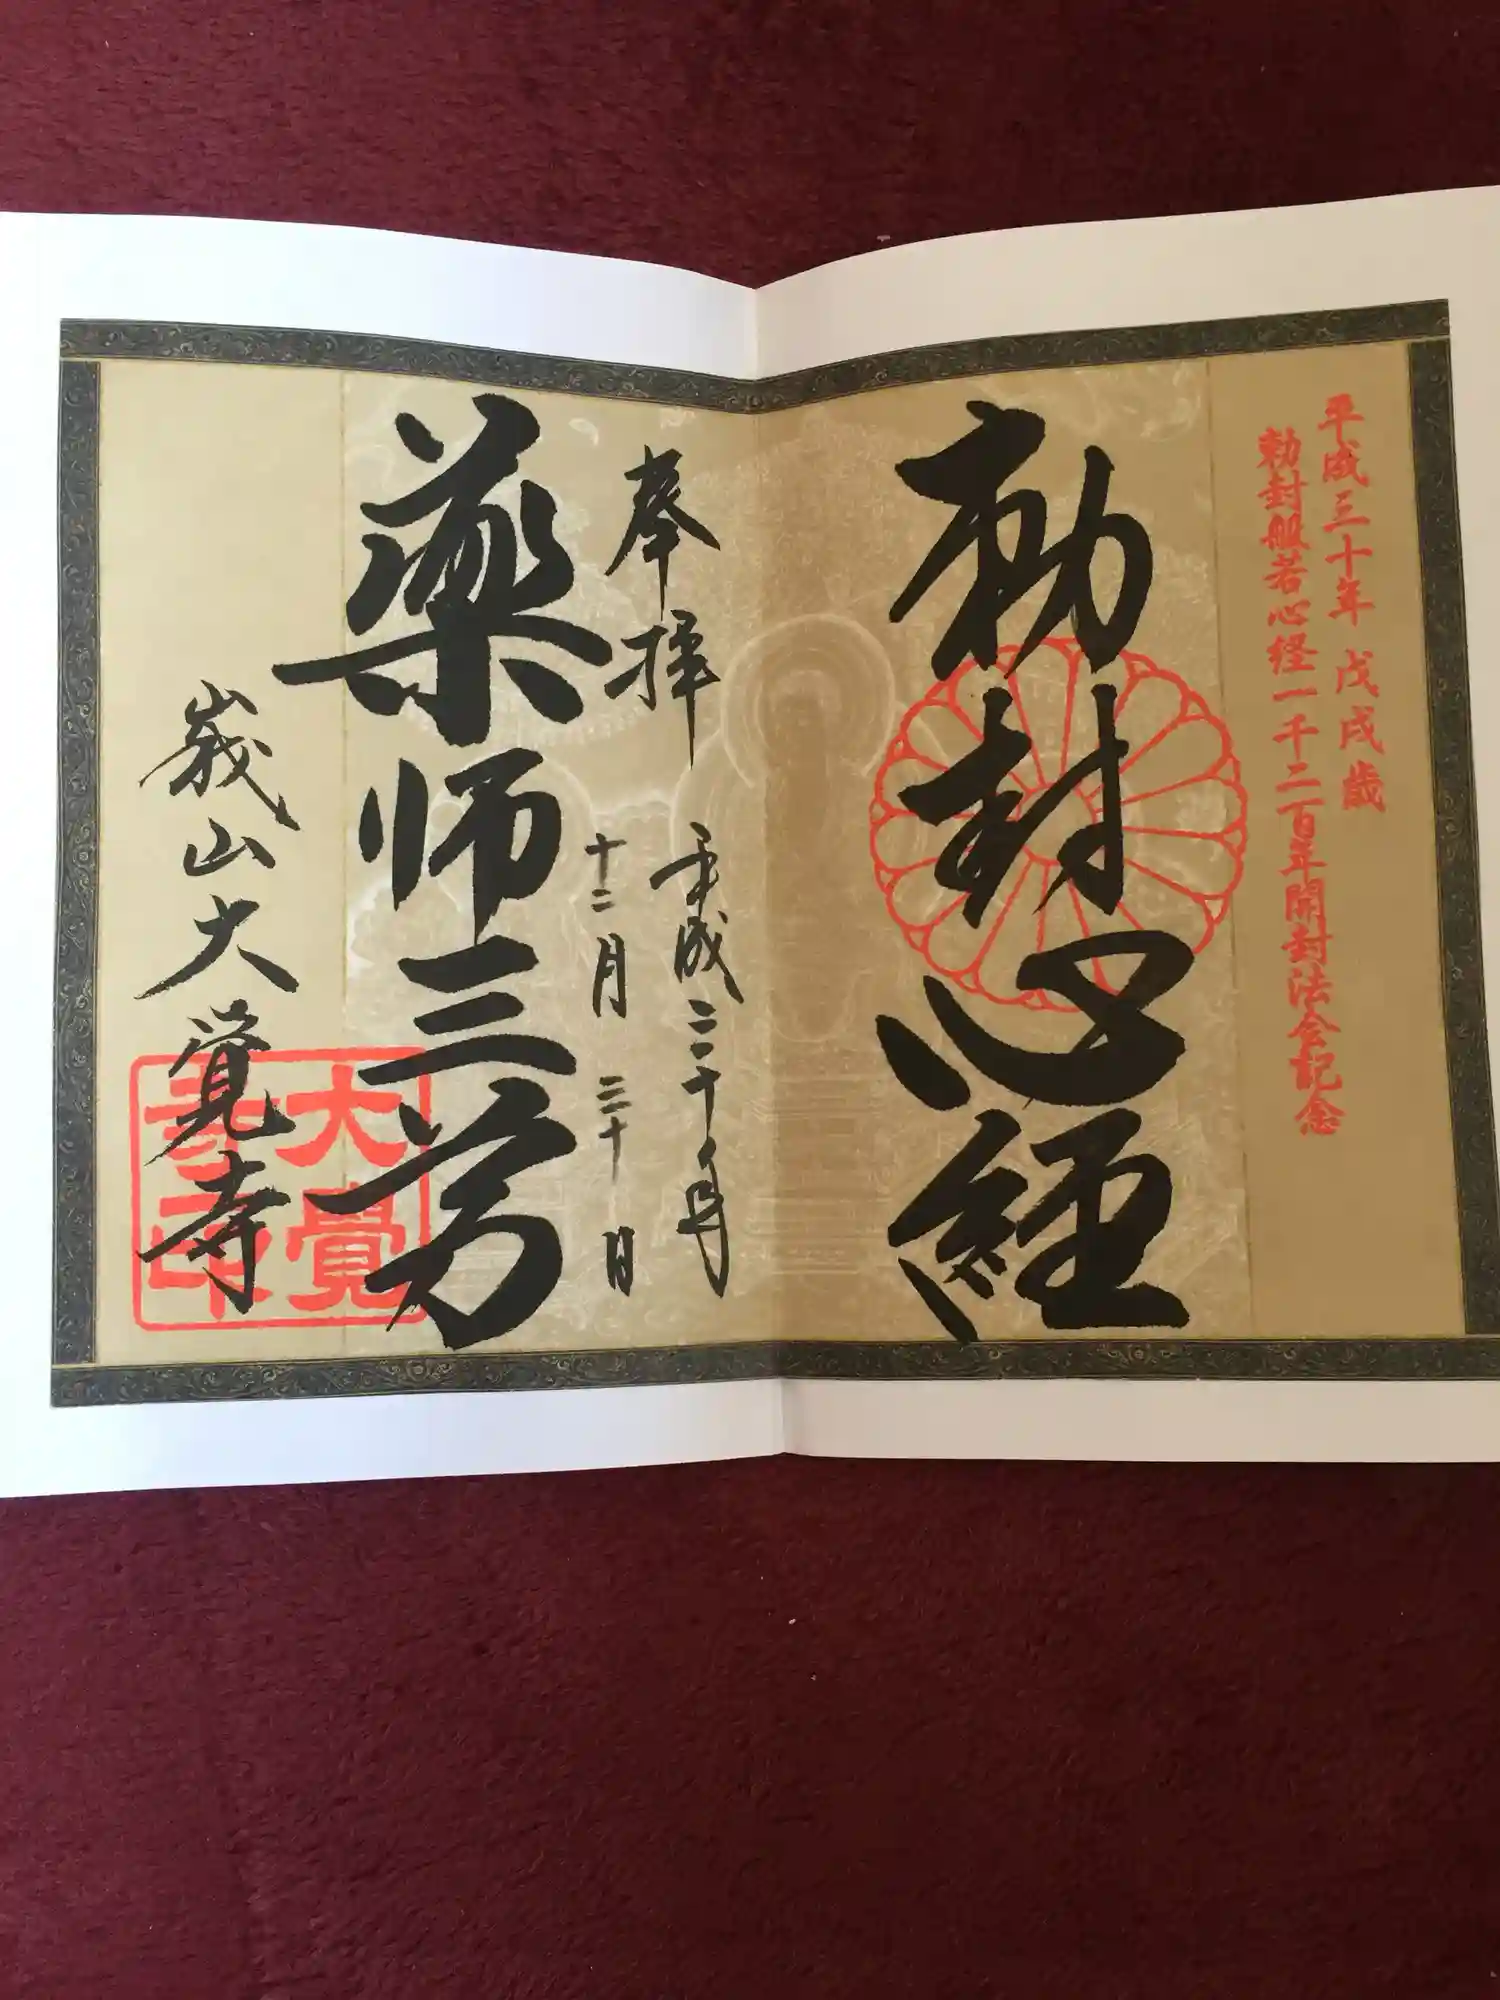 平成三十年 戊戌歳
勅封般若心経一千二百年開封法会記念
勅封心経
奉拝
平成三十年
十二月三十日
薬師三尊
嵯峨山大覚寺
大覺
寺印